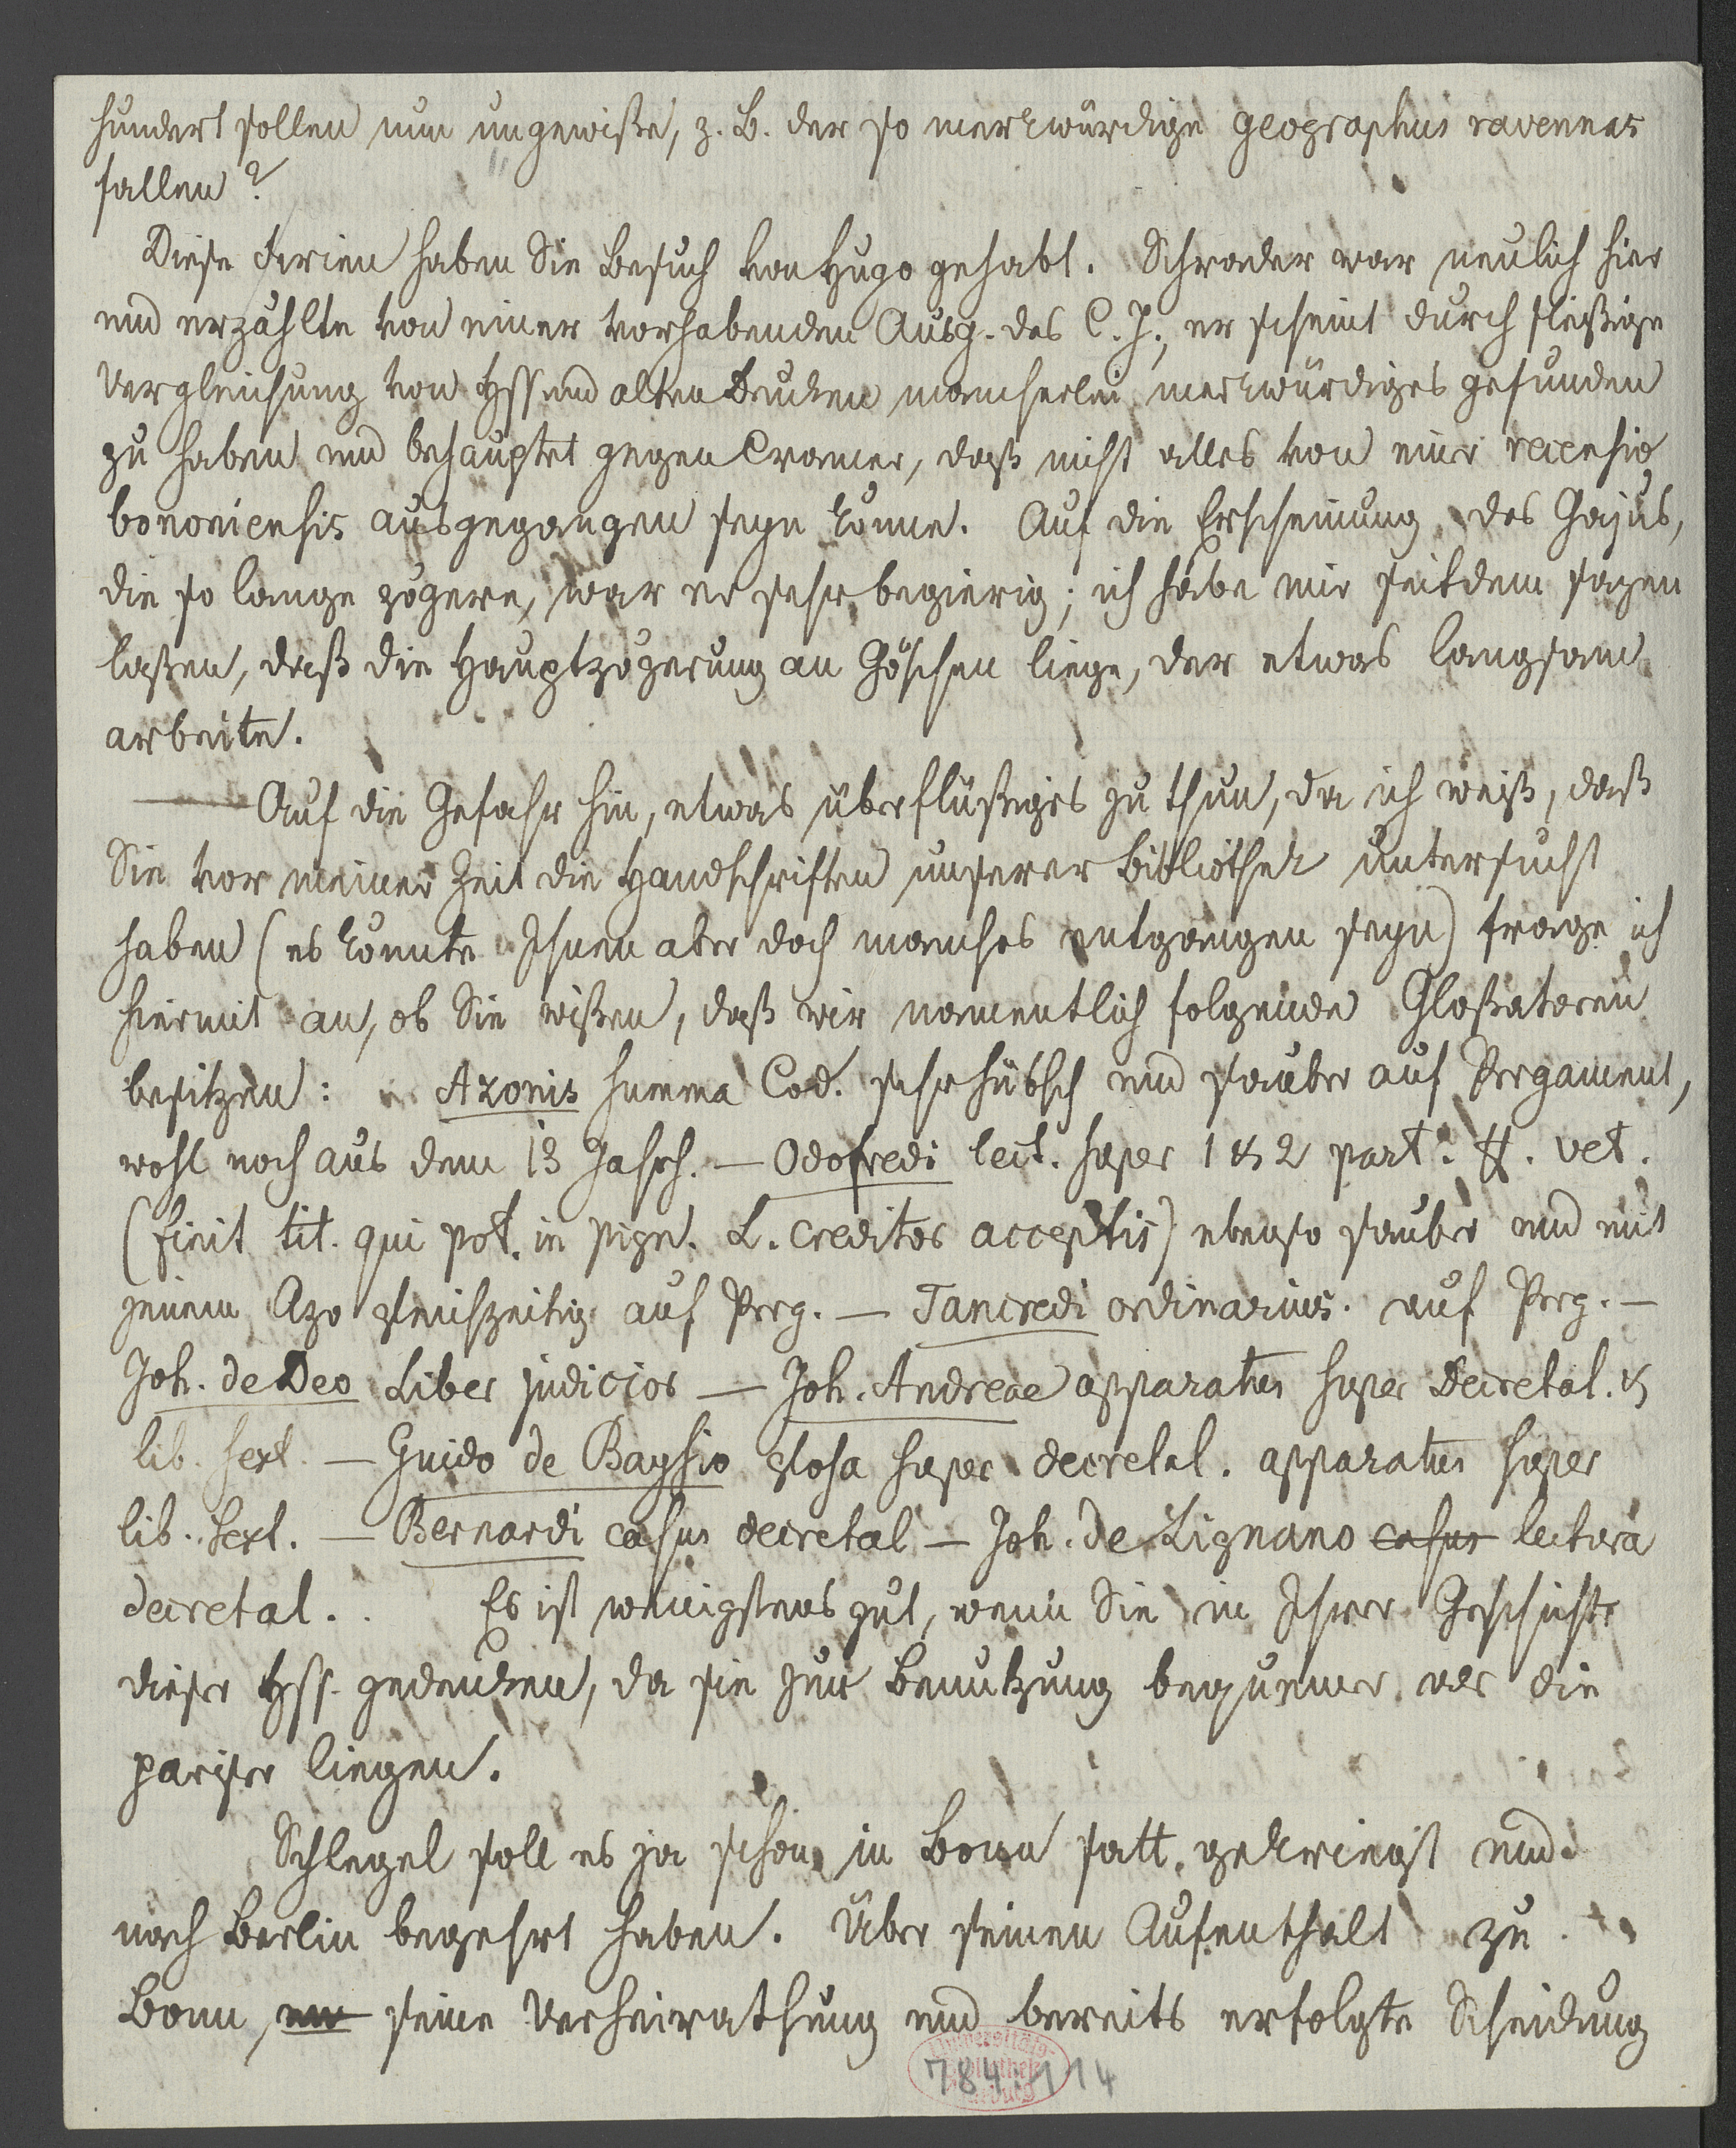 hundert sollen nun ungewiße, z. B. der so merkwürdige geographus ravennas
fallen?
Diese Ferien haben Sie Besuch von Hugo gehabt. Schrader war neulich hier
und erzählte von einer vorhabenden Ausg. des C. J., er scheint durch fleißige
Vergleichung von Hss und alten Drucken mancherlei merkwürdiges gefunden
zu haben und behauptet gegen Cramer, daß nicht alles von einer recensio
bononiensis ausgegangen seyn könne. Auf die Erscheinung des Gajus,
die so lange zögere, war er sehr begierig; ich habe mir seitdem sagen
laßen, daß die Hauptzögerung an Göschen liege, der etwas langsam
arbeite.
— Auf die Gefahr hin, etwas überflüßiges zu thun, da ich weiß, daß
Sie vor meiner Zeit die Handschriften unserer Bibliothek untersucht
haben (es könnte Ihnen aber doch manches entgangen seyn) frage ich
hiermit an, ob Sie wißen, daß wir namentlich folgende Gloßatoren
besitzen: Azonis summa Cod. sehr hübsch und sauber auf Pergament,
wohl noch aus dem 13 Jahrh. — Odofredi lect. super 1 & 2 part. ff. vet.
(finit tit. qui pot. in pign. L. creditor acceptis) ebenso sauber und mit
jenem Azo gleichzeitig auf Perg. — Tancredi ordinarius. auf Perg. —
Joh. de Deo Liber judicior — Joh. Andreae apparatus super Decretal. &
lib. sext. — Guido de Baysio glosa super decretal. apparatus super
lib. sext. — Bernardi casus decretal — Joh. de Lignano casus lectura
decretal. . Es ist wenigstens gut, wenn Sie in Ihrer Geschichte
dieser Hss. gedenken, da sie zur Benutzung bequemer als die
pariser liegen.
Schlegel soll es ja schon in Bonn satt gekriegt und
nach Berlin begehrt haben. Über seinen Aufenthalt zu
Bonn, seine Verheirathung und bereits erfolgte Scheidung
784:114